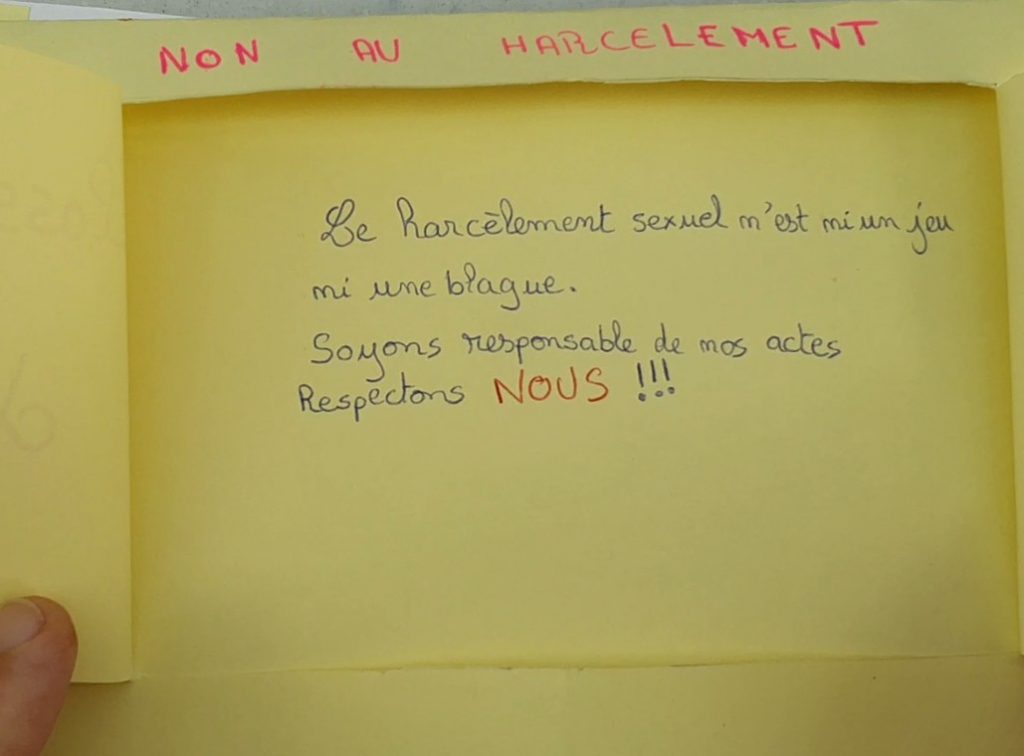 NON AU HARCELEMENT
Le harcèlement sexuel n'est ni un jeu
ni une blague.
Soyons responsable de nos actes
Respectons NOUS !!!